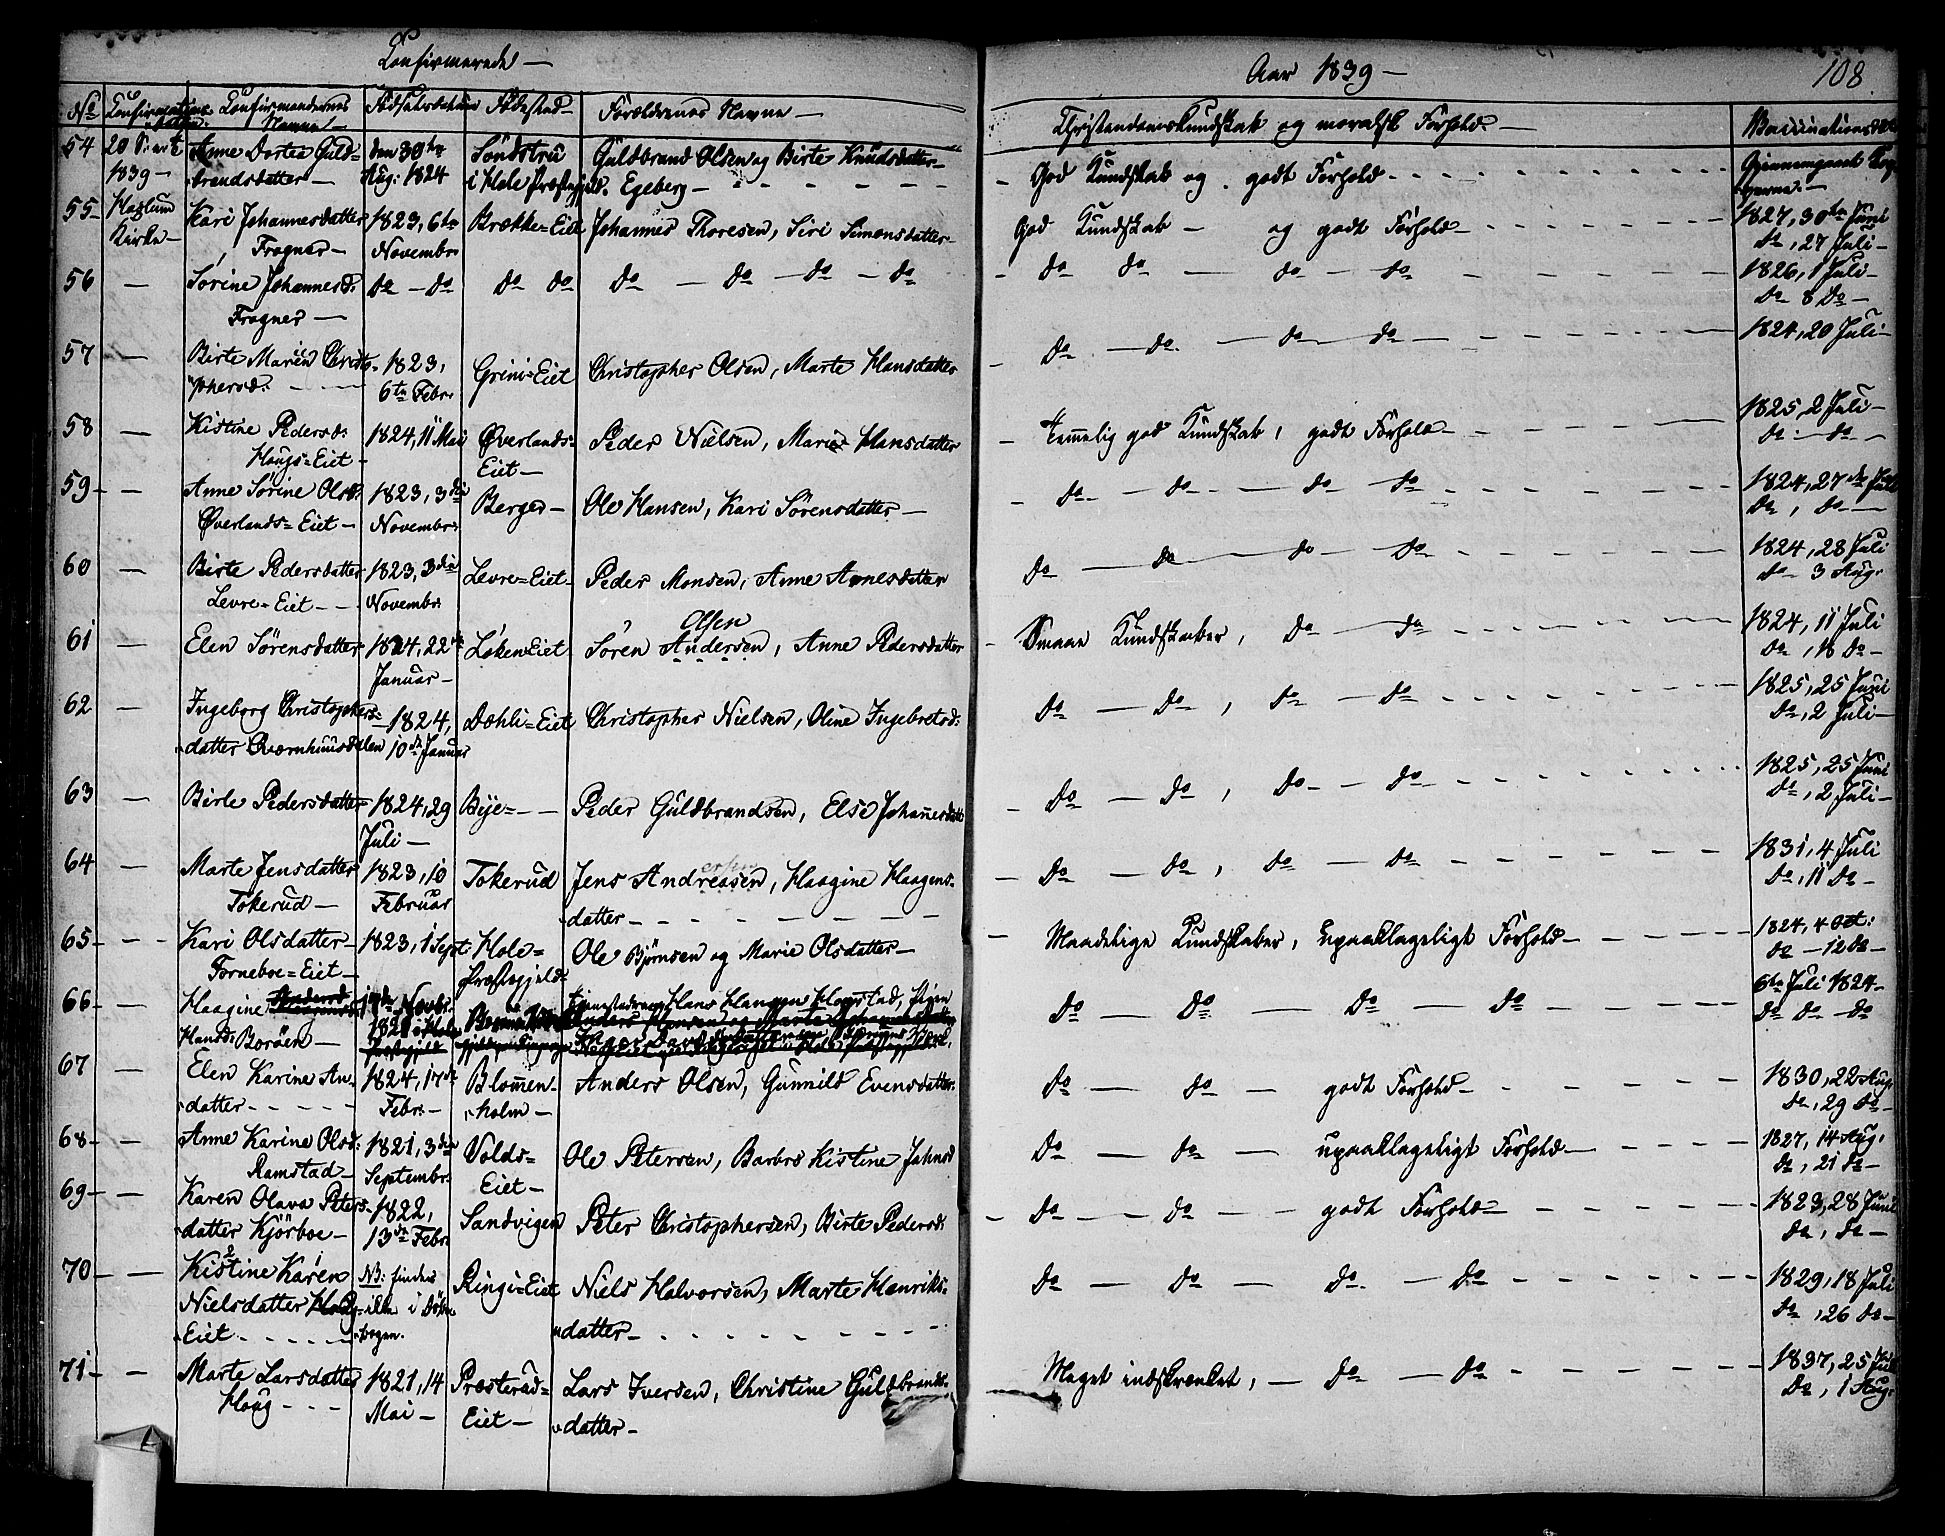 Confirmerede —
Aar 1839 —
108
No Confirmations Confirmandernes Navne — Fødselsdatum Fødested — Forældrenes Navne —
Christendomskundskab og moralsk Forhold —
54 Anne Dortea Guld- den 30te Söndstrü Guldbrand Olsen og Birte Knudsdatter
1839 — brandsdatter — Aug: 1824 i Hole Præstegjeld. Egeberg —
God Kundskab og godt Forhold
55 Haslum Kari Johannesdatter 1823, 6te Brække-Eiet Johannes Thoresen, Siri Simonsdatter
Kirke — Fragner — Novembr.
God Kundskab — og godt Forhold — 1827, 30te Juni
do, 27 Juli —
56 — Sørine Johannesd. do — do do do do — do — do — do
Fragner —
do do — do — do 1826, 1 Juli —
do 8 do —
57 — Birte Marie Christo- 1823, Grini-Eiet Christopher Olsen, Marte Hansdatter
phersd. 6te Febr.
do — do — do — do — 1824, 20 Juli —
58 — Kistine Pedersd: 1824, 11 Mai Øverlands- Peder Nielsen, Marie Hansdatter
Haugs-Eiet — Eiet —
Temmelig god Kundskab, godt Forhold — 1825, 2 Juli —
do — do —
59 — — Anne Sørine Olsd: 1823, 3die Berger — Ole Hansen, Kari Sörensdatter —
Øverlands-Eiet — Novembr.
do — do — do do 1824, 27de Juli
do, do —
60 — Birte Pedersdatter 1823, 3die Levre-Eiet Peder Monsen, Anne Arnesdatter
Levre-Eiet — Novembr.
do — do — do — do 1824, 28 Juli
do — 3 Aug.
Olsen
61 — Elen Sørensdatter 1824, 22de Løken-Eiet Sören Andersen, Anne Pedersdatter
Januar —
Smaae Kundskaber, do — do 1824, 11 Juli
do, 18 do —
62 — Ingeborg Christophers- 1824, Dæhli-Eiet Christopher Nielsen, Oline Ingebretsd:
datter 10de Januar
do — do, do — do 1825, 25 Juni
do, 2 Juli —
63 — Birte Pedersdatter 1824, 29 Bye — Peder Guldbrandsen, Else Johannesdatter
Juli —
do — do, do — do 1825, 25 Juni
do, 2 Juli —
64 — Marte Jensdatter 1823, 10 Tokerud Jens Andreasen, Haagine Haagens-
Tokerud — Februar datter —
do — do, do — do 1831, 4 Juli
do, 11 do —
65 — — Kari Olsdatter — 1823, 1 Sept. Hole- Ole Bjørnsen og Marie Olsdatter —
Torneboe-Eiet — Præstegjeld
Maadelige Kundskaber, upaaklageligt Forhold — 1824, 4 Oct:
do — 12 do —
66 — Haagine
Hansd: Borøen —
do — do — do — do 6te Juli 1824 —
do do — do
67 — Elen Karine An- 1824, 17de Blommen- Anders Olsen, Gunnild Evensdatter
datter Febr. — holm —
do — do — godt Forhold — 1830, 22 Aug.
do, 29 do —
68 — Anne Karine Olsd. 1821, 3die Volds- Ole Petersen, Barbro Kistine Jahnsd
Ramstad — Septembr. Eiet —
do — do — upaaklageligt Forhold — 1827, 14 Aug.
do, 21 do —
69 — Karen Olava Peters- 1822, Sandvigen Peter Christophersen, Birte Pedersd:
datter Kjörboe — 13de Febr.
do — do — godt Forhold — 1823, 28 Juni
do, do —
2 1
70 — Kistine Karen NB: findes Ringi-Eiet Niels Halvorsen, Marte Henriks-
Nielsdatter ikke i Döbe-
Eiet bogen. datter —
do — do — do — do 1829, 18 Juli
do, 26 do —
71 — Marte Larsdatter 1821, 14 Præsterud- Lars Iversen, Christine Guldbrands-
Haug Mai — Eiet — datter —
Meget indskrænket, — do — do 1837, 25 Juli
do, 1 Aug.